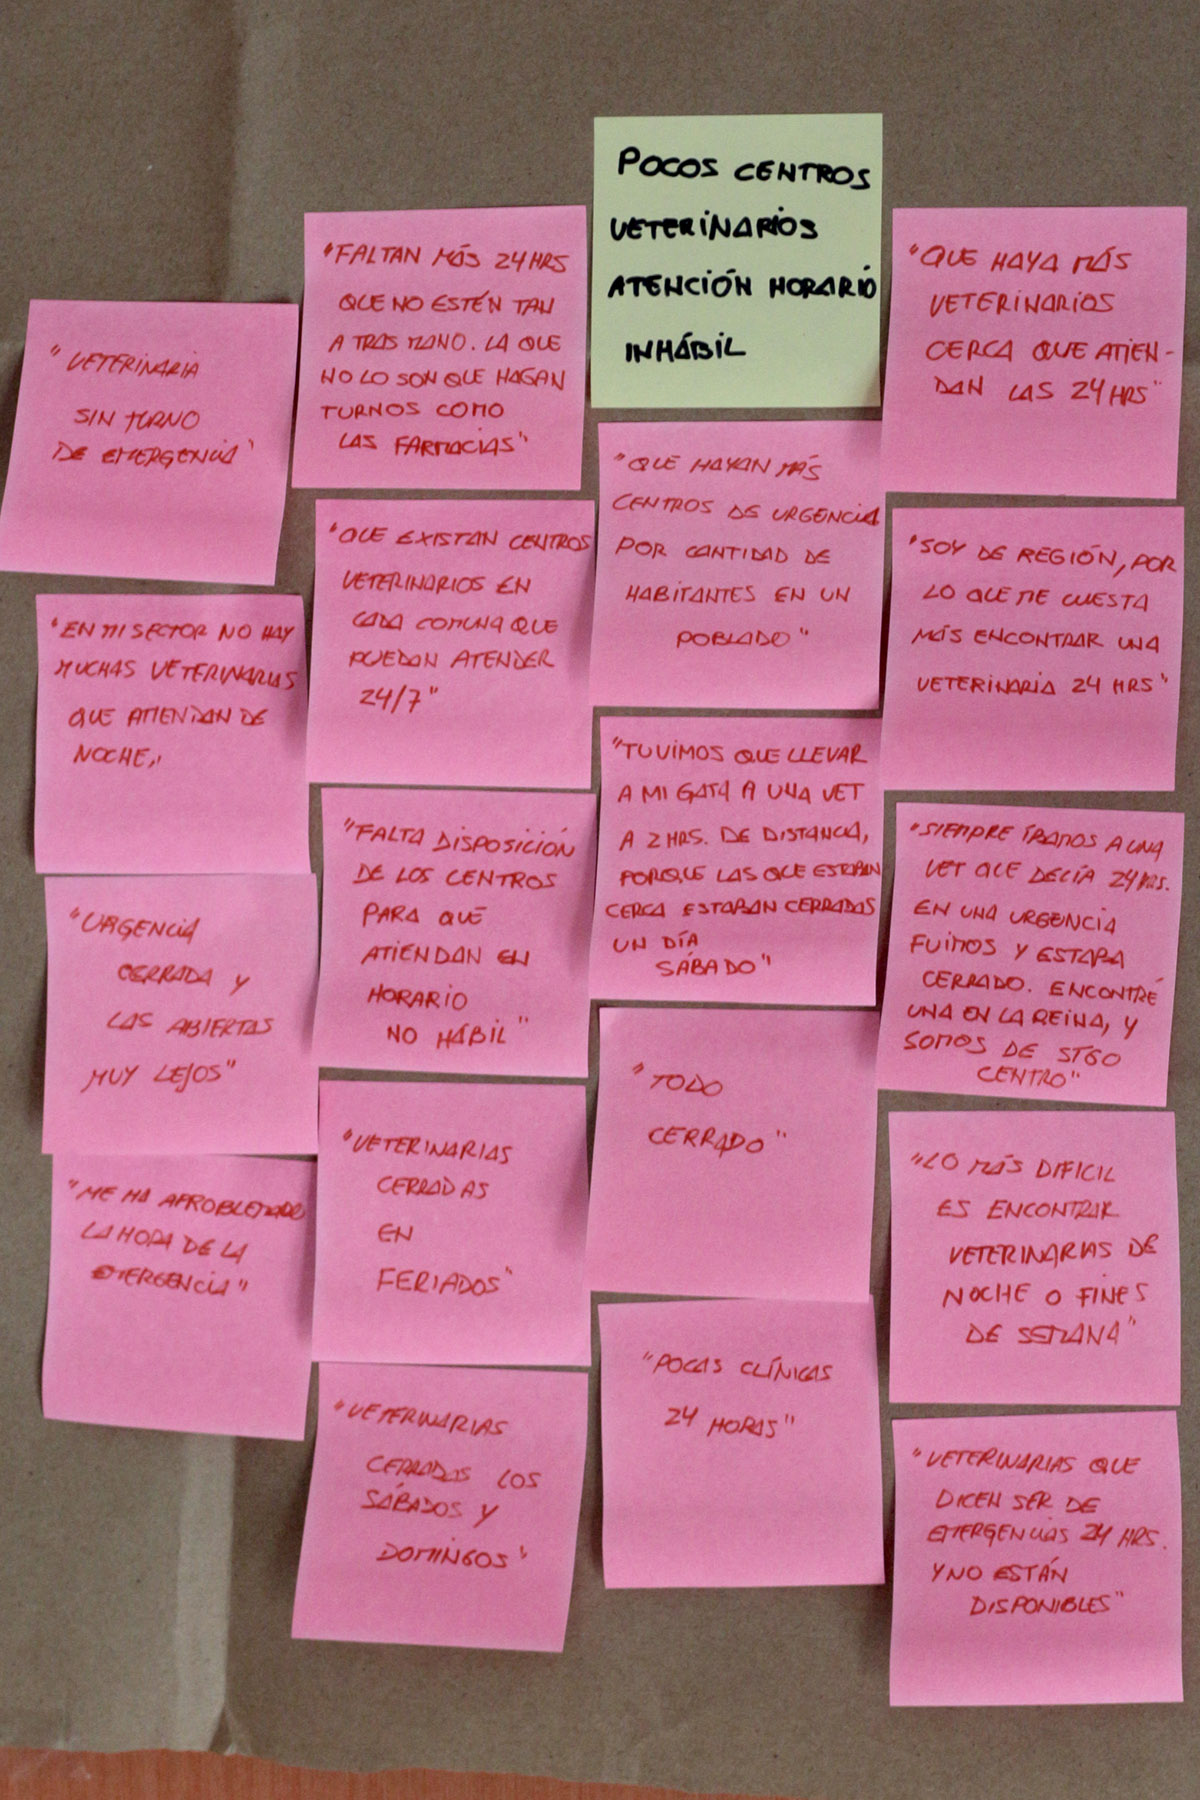 POCOS CENTROS
VETERINARIOS
ATENCIÓN HORARIO
INHÁBIL
"VETERINARIA
SIN TURNO
DE EMERGENCIA"
"EN MI SECTOR NO HAY
MUCHAS VETERINARIAS
QUE ATIENDAN DE
NOCHE"
"URGENCIA
CERRADA Y
LAS ABIERTAS
MUY LEJOS"
"ME HA
LA HORA DE LA
EMERGENCIA"
"FALTAN MÁS 24 HRS
QUE NO ESTÉN TAN
A TRAS MANO. LA QUE
NO LO SON QUE HAGAN
TURNOS COMO
LAS FARMACIAS"
"QUE EXISTAN CENTROS
VETERINARIOS EN
CADA COMUNA QUE
PUEDAN ATENDER
24/7"
"FALTA DISPOSICIÓN
DE LOS CENTROS
PARA QUÉ
ATIENDAN EN
HORARIO
NO HÁBIL"
"VETERINARIAS
CERRADAS
EN
FERIADOS"
"VETERINARIAS
CERRADAS LOS
SÁBADOS Y
DOMINGOS"
"QUE HAYAN MÁS
CENTROS DE URGENCIA
POR CANTIDAD DE
HABITANTES EN UN
POBLADO"
"TUVIMOS QUE LLEVAR
A MI GATA A UNA VET
A 2 HRS. DE DISTANCIA,
PORQUE LAS QUE ESTABAN
CERCA ESTABAN CERRADAS
UN DÍA
SÁBADO"
"TODO
CERRADO"
"POCAS CLÍNICAS
24 HORAS"
"QUE HAYA MÁS
VETERINARIOS
CERCA QUE ATIEN-
DAN LAS 24 HRS"
"SOY DE REGIÓN, POR
LO QUE ME CUESTA
MÁS ENCONTRAR UNA
VETERINARIA 24 HRS"
"SIEMPRE ÍBAMOS A UNA
VET QUE DECÍA 24 HRS.
EN UNA URGENCIA
FUIMOS Y ESTABA
CERRADO. ENCONTRÉ
UNA EN LA REINA, Y
SOMOS DE STGO
CENTRO"
"LO MÁS DIFICIL
ES ENCONTRAR
VETERINARIAS DE
NOCHE O FINES
DE SEMANA"
"VETERINARIAS QUE
DICEN SER DE
EMERGENCIAS 24 HRS.
Y NO ESTÁN
DISPONIBLES"